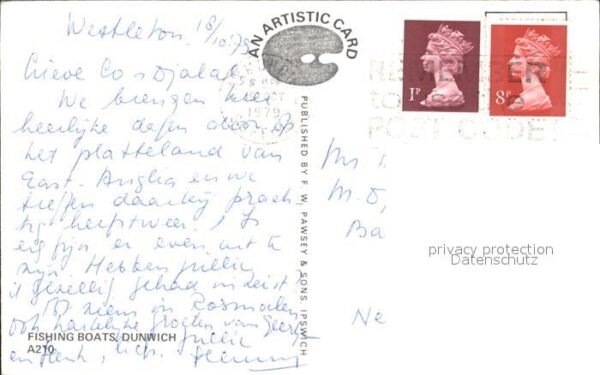 Westleton 18/10.79
AN ARTISTIC CARD
Lieve Co
We brengen hier
heerlijke dagen door op
het platteland van
East-Anglia en we
treffen daarbij prach
tig herfstweer! Is
erg fijn er even uit te
zijn. Hebben jullie
't gezellig gehad in Zeist?
Tot ziens in Rosmalen
ook hartelijke groeten van
jullie
en Henk,
FISHING BOATS, DUNWICH
A210
PUBLISHED BY F. W. PAWSEY & SONS. IPSWICH
1979
REMEMBER
to
POST CODE
1P
8P
M
Ba
Ne
privacy protection
Datenschutz